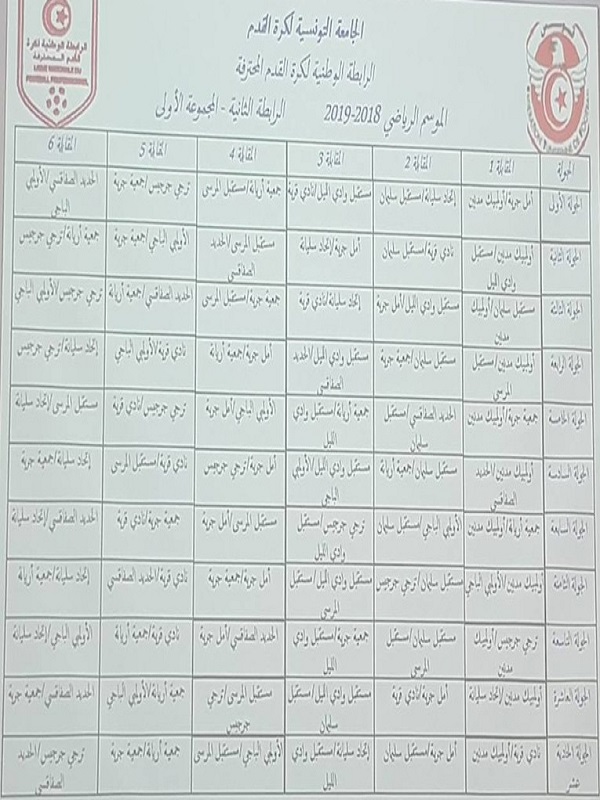 الجامعة التونسية لكرة القدم
الرابطة الوطنية لكرة القدم المحترفة
الموسم الرياضي 2018-2019 الرابطة الثانية - المجموعة الأولى
الجولة المقابلة 1 المقابلة 2 المقابلة 3 المقابلة 4 المقابلة 5 المقابلة 6
الجولة الأولى أمل جربة/أولمبيك مدنين إتحاد سليانة/مستقبل سليمان مستقبل وادي الليل/نادي قربة جمعية أريانة/مستقبل المرسى ترجي جرجيس/جمعية جربة الحديد الصفاقسي/الأولمبي الباجي
الجولة الثانية أولمبيك مدنين/مستقبل وادي الليل نادي قربة/مستقبل سليمان أمل جربة/إتحاد سليانة مستقبل المرسى/الحديد الصفاقسي الأولمبي الباجي/جمعية جربة جمعية أريانة/ترجي جرجيس
الجولة الثالثة مستقبل سليمان/أولمبيك مدنين مستقبل وادي الليل/أمل جربة إتحاد سليانة/نادي قربة جمعية جربة/مستقبل المرسى الحديد الصفاقسي/جمعية أريانة ترجي جرجيس/الأولمبي الباجي
الجولة الرابعة أولمبيك مدنين/مستقبل المرسى مستقبل سليمان/جمعية جربة مستقبل وادي الليل/الحديد الصفاقسي أمل جربة/جمعية أريانة نادي قربة/الأولمبي الباجي إتحاد سليانة/ترجي جرجيس
الجولة الخامسة جمعية جربة/أولمبيك مدنين الحديد الصفاقسي/مستقبل سليمان جمعية أريانة/مستقبل وادي الليل الأولمبي الباجي/أمل جربة ترجي جرجيس/نادي قربة مستقبل المرسى/إتحاد سليانة
الجولة السادسة أولمبيك مدنين/الحديد الصفاقسي مستقبل سليمان/جمعية أريانة مستقبل وادي الليل/الأولمبي الباجي أمل جربة/ترجي جرجيس نادي قربة/مستقبل المرسى إتحاد سليانة/جمعية جربة
الجولة السابعة جمعية أريانة/أولمبيك مدنين الأولمبي الباجي/مستقبل سليمان ترجي جرجيس/مستقبل وادي الليل مستقبل المرسى/أمل جربة جمعية جربة/نادي قربة الحديد الصفاقسي/إتحاد سليانة
الجولة الثامنة أولمبيك مدنين/الأولمبي الباجي مستقبل سليمان/ترجي جرجيس مستقبل وادي الليل/مستقبل المرسى أمل جربة/جمعية جربة نادي قربة/الحديد الصفاقسي إتحاد سليانة/جمعية أريانة
الجولة التاسعة ترجي جرجيس/أولمبيك مدنين مستقبل سليمان/مستقبل المرسى جمعية جربة/مستقبل وادي الليل الحديد الصفاقسي/أمل جربة نادي قربة/جمعية أريانة الأولمبي الباجي/إتحاد سليانة
الجولة العاشرة أولمبيك مدنين/إتحاد سليانة أمل جربة/نادي قربة مستقبل وادي الليل/مستقبل سليمان مستقبل المرسى/ترجي جرجيس جمعية أريانة/الأولمبي الباجي الحديد الصفاقسي/جمعية جربة
الجولة الحادية عشر نادي قربة/أولمبيك مدنين أمل جربة/مستقبل سليمان إتحاد سليانة/مستقبل وادي الليل الأولمبي الباجي/مستقبل المرسى جمعية أريانة/جمعية جربة ترجي جرجيس/الحديد الصفاقسي